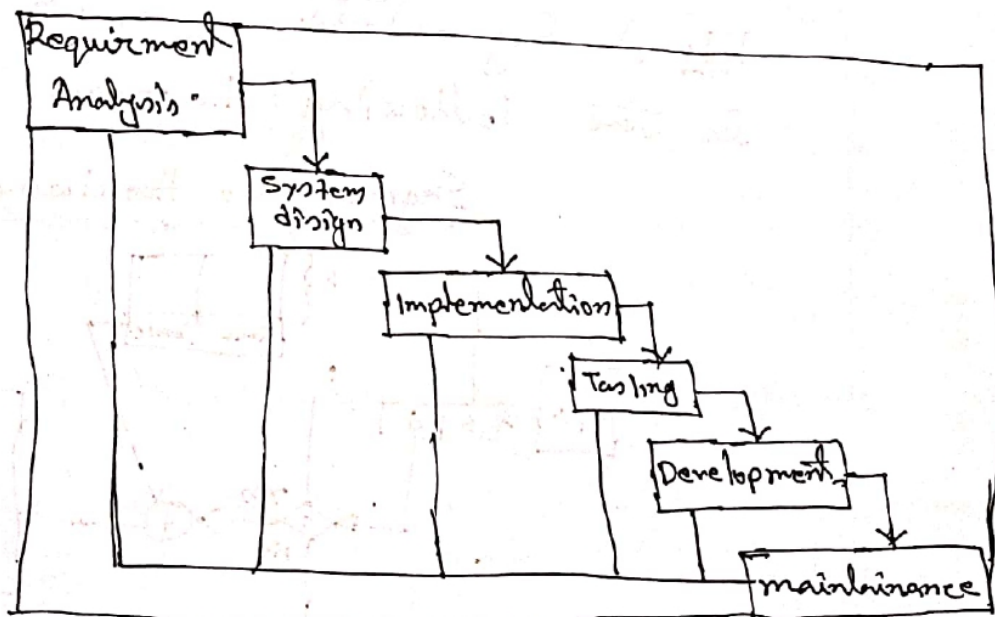 Requirment
Analysis.
System
disign
Implementation
Tasting
Development
maintainance